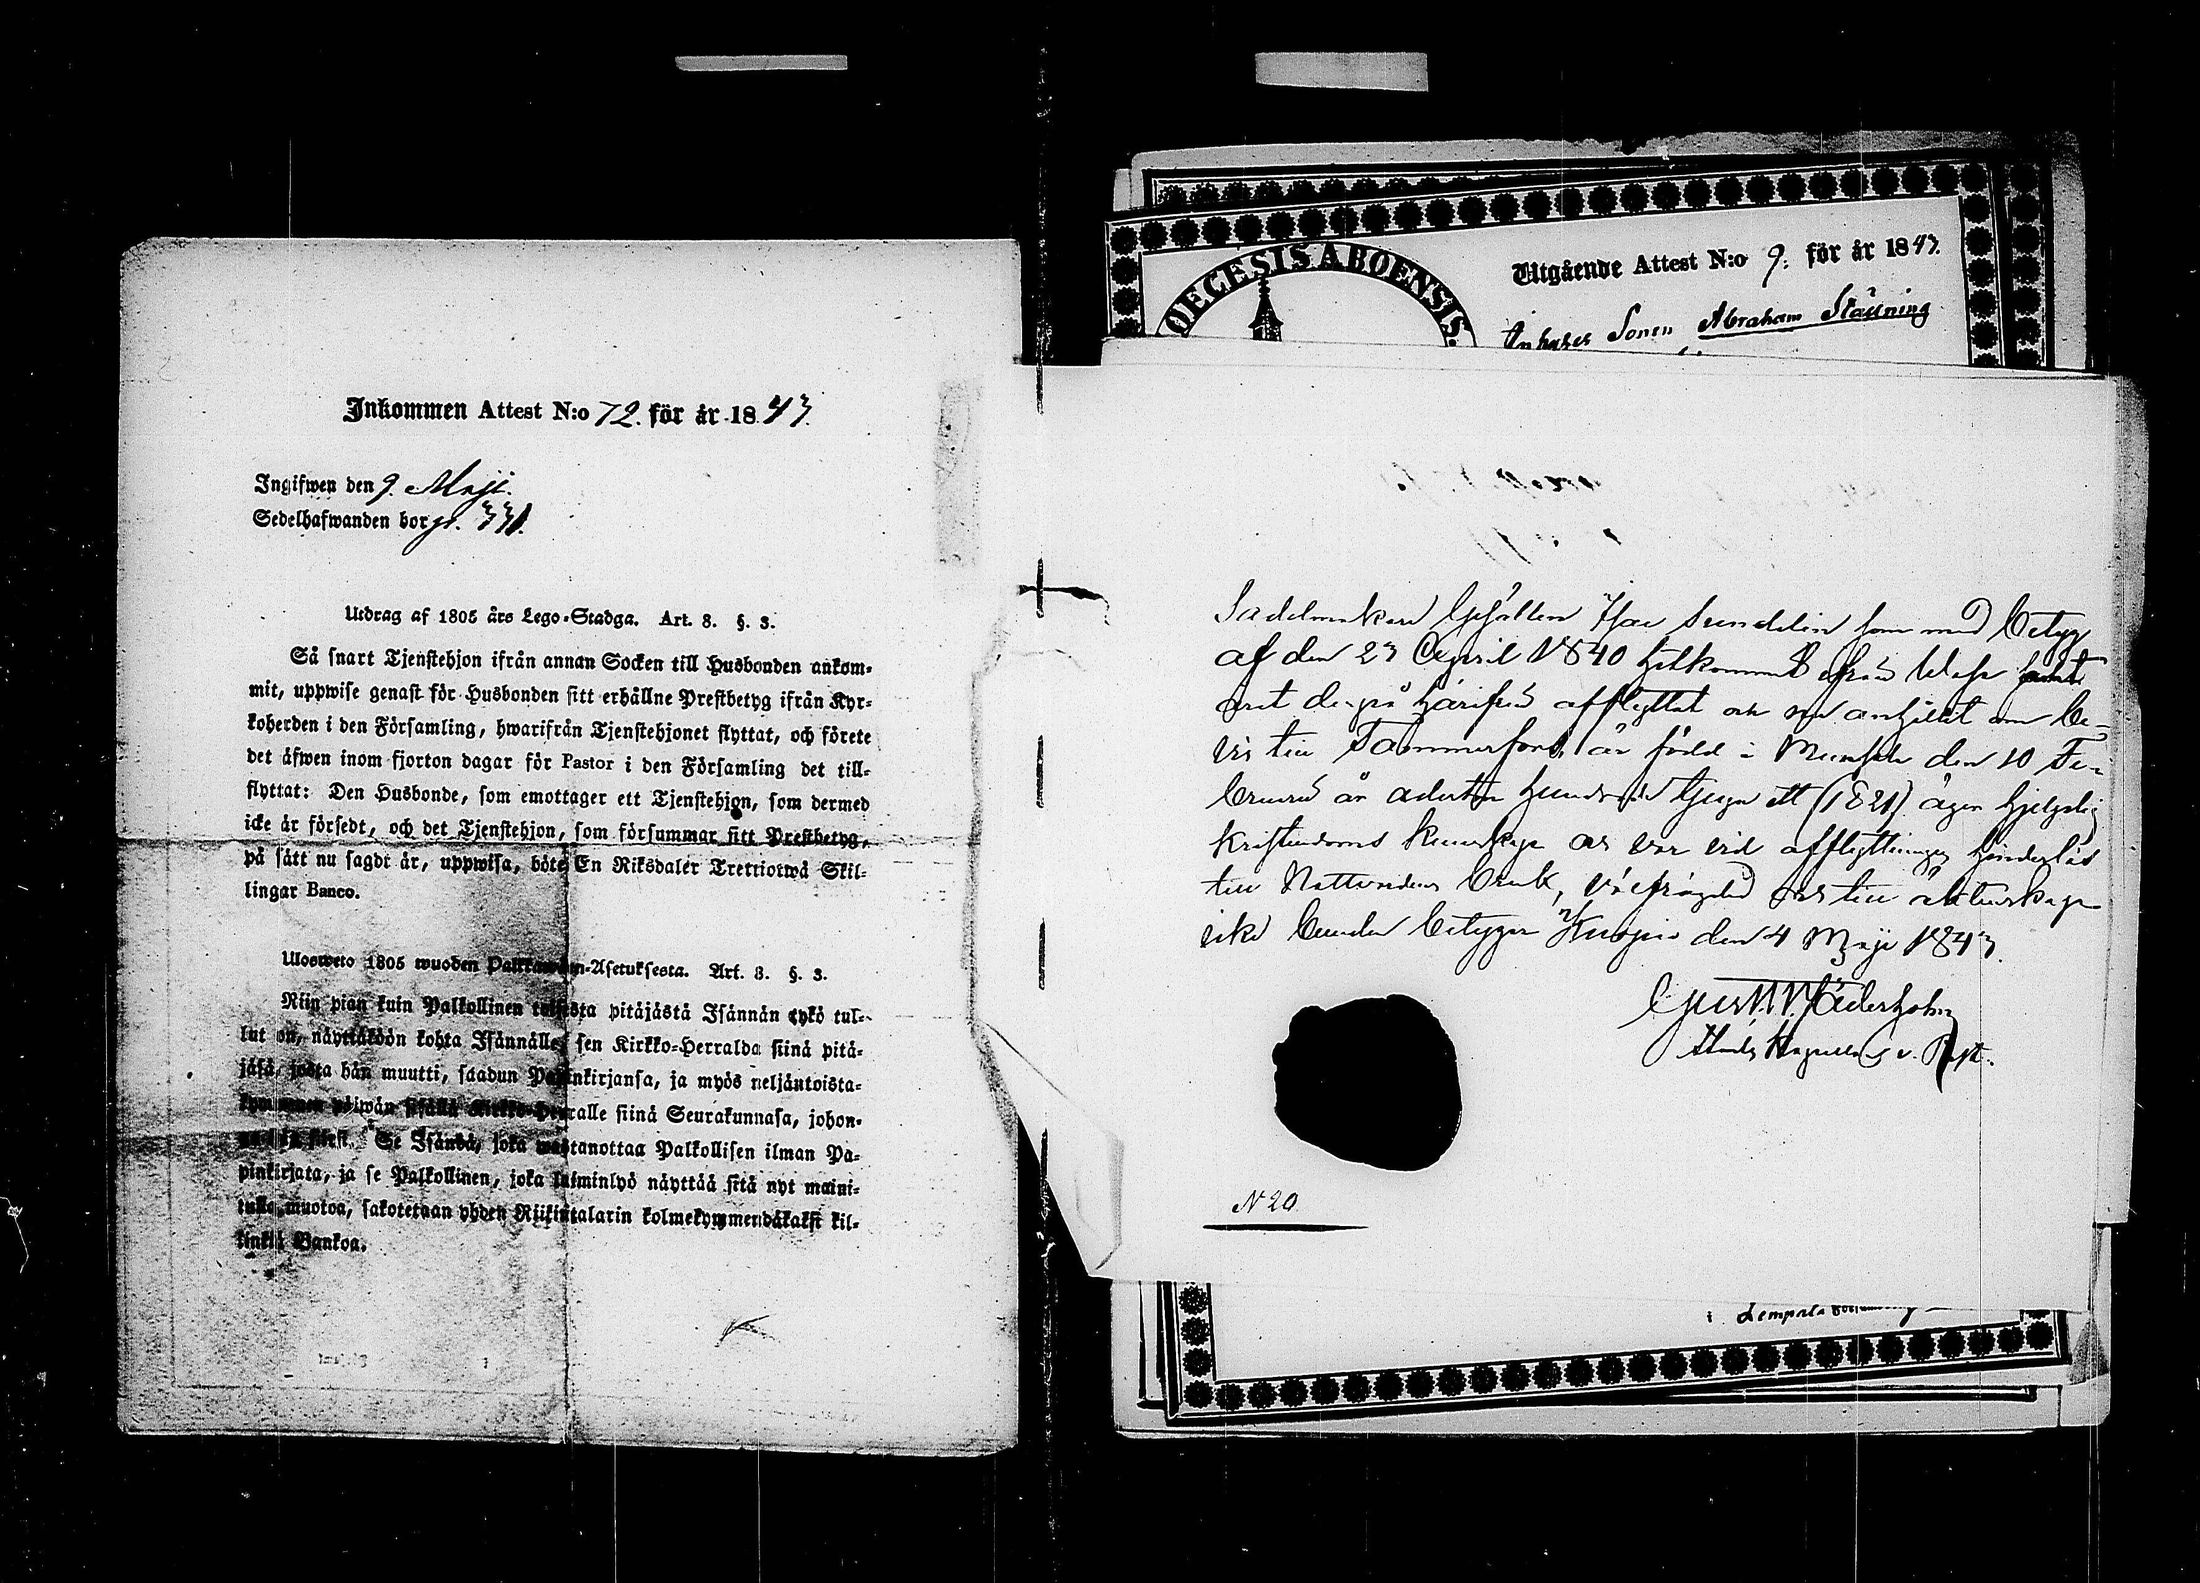 Inkommen Attest N:o 72. för år 1843.
Ingifwen den 9. Maji.
Sedelhafwanden bor gr. 331.
Utdrag af 1805 års Lego-Stadga. Art. 8. §. 3.
Så snart Tjenstehjon ifrån annan Socken till Husbonden ankom-
mit, uppwise genast för Husbonden sitt erhållne Prestbetyg ifrån Kyr-
koherden i den Församling, hwarifrån Tjenstehjonet flyttat, och förete
det äfwen inom fjorton dagar för Pastor i den Församling det till-
flyttat: Den Husbonde, som emottager ett Tjenstehjon, som dermed
icke är försedt, och det Tjenstehjon, som försummar sitt Prestbetyg,
på sätt nu sagdt är, uppwisa, böte En Riksdaler Trettiotwå Skil-
lingar Banco.
Ulosweto 1805 wuoden Palkkawäen-Asetuksesta. Art. 8. §. 3.
Niin pian kuin Palkollinen toisesta pitäjästä Isännän tykö tul-
lut on, näyttäköön kohta Isännälle sen Kirkko-Herralda siinä pitä-
jäsä, josta hän muutti, saadun Papinkirjansa, ja myös neljäntoista-
kymmenen päiwän sisällä Kirkko-Herralle siinä Seurakunnasa, johon-
Se Isändä, joka wastanottaa Palkollisen ilman Pa-
pinkirjata, ja se Palkollinen, joka laiminlyö näyttää sitä nyt maini-
tulla muotoa, sakotetaan yhden Riikintalarin kolmekymmendäkaksi kil-
linkiä Bankoa.
DIOECESIS ABOENSIS.
Utgående Attest N:o 9. för år 1843.
Inhyses Sonen Abraham
Sadelmakare Gesällen Isac Sundelin som med betyg
af den 23 April 1840 hitkommit ifrån Wasa samt
härifrån afflyttat och nu anhållit om be-
vis till Tammerfors, är född i den 10 Fe-
bruarii år adertonhundrade tjugu ett (1821) äger hjelplig
kristendoms kunskap och var vid afflyttningen hinderlös
till Nattvardens bruk, välfrägdad och till äktenskap
icke bunden betygar Kuopio den 4 Maji 1843.
v. Past.
N 20
i Lempälä